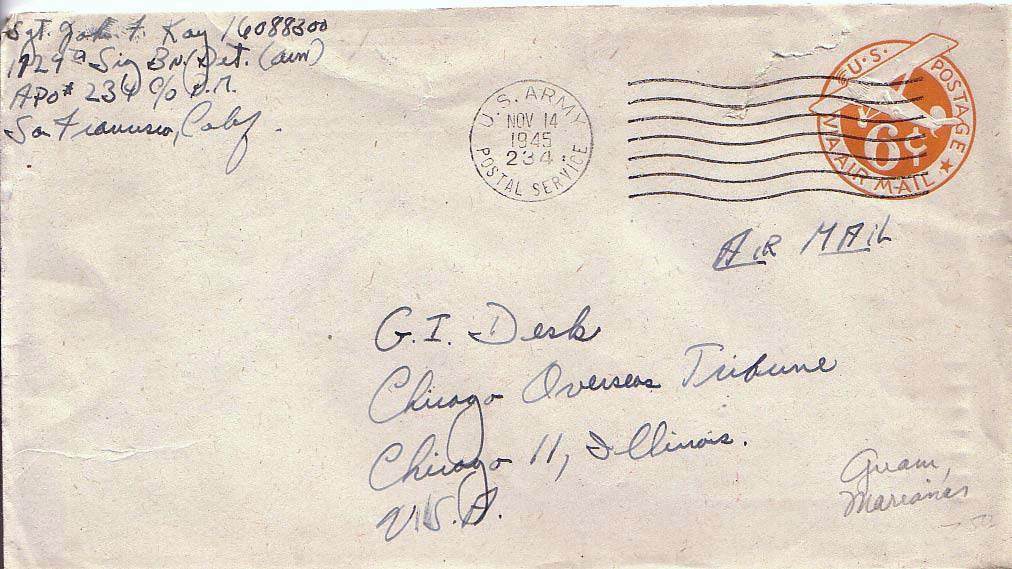 Sgt. John F. Kay 16088300
1929th Sig Bn. Det. (avn)
APO# 234 c/o P.M.
San Francisco, Calif.
U.S. ARMY
NOV 14
1945
234
POSTAL SERVICE
U.S. POSTAGE
6¢
VIA AIR MAIL
AIR MAIL
G.I. Desk
Chicago Overseas Tribune
Chicago 11, Illinois.
U.S.A.
Guam,
Marianas